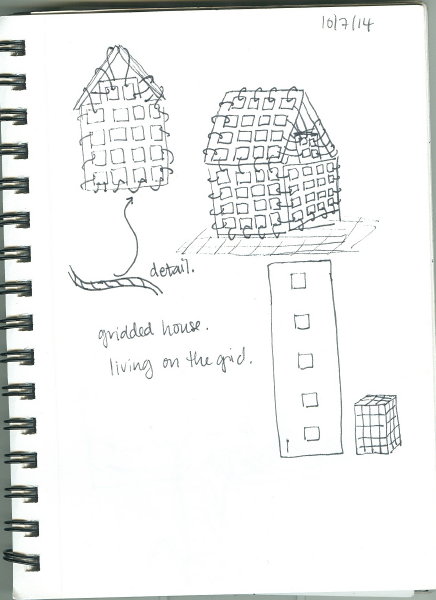 10/7/14
detail.
gridded house.
living on the grid.